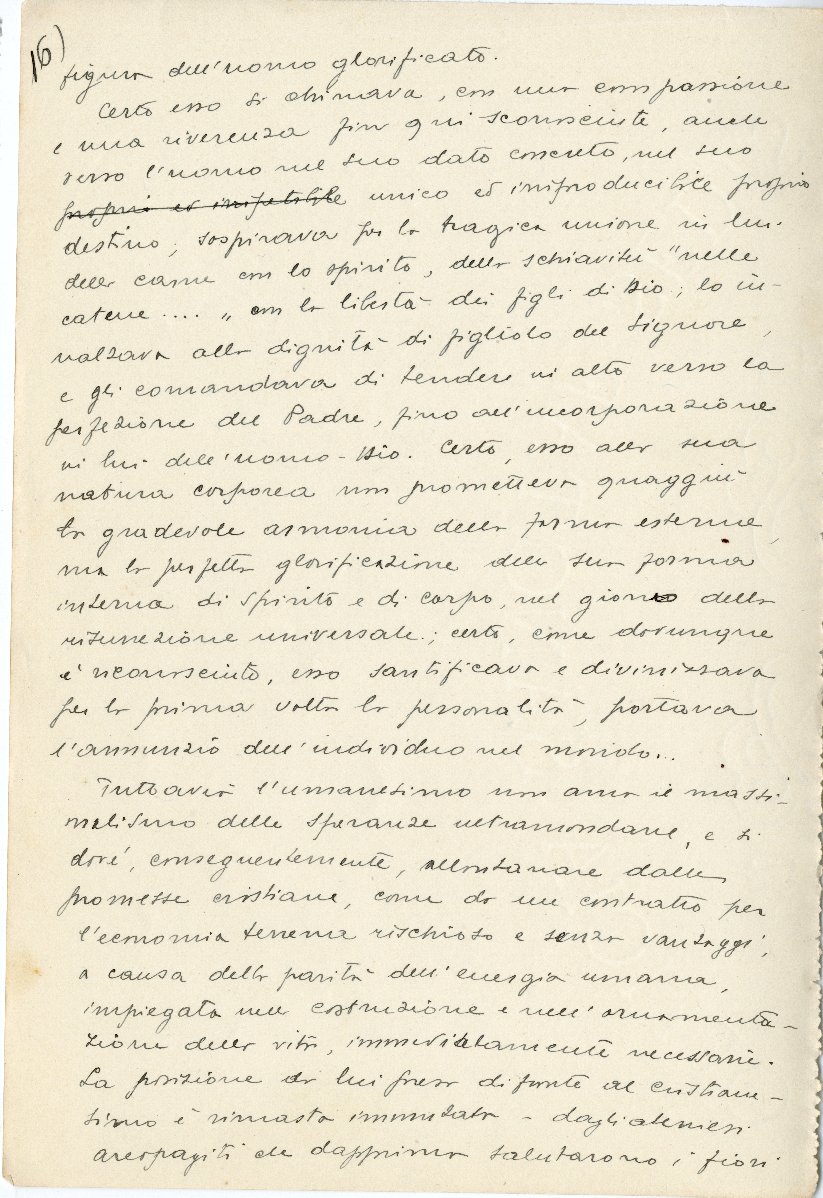 16)
figura dell'uomo glorificato.
Certo esso si chinava, con una compassione
e una riverenza fin qui sconosciute, anche
verso l'uomo nel suo dato concreto, nel suo
proprio ed irripetibile unico ed irriproducibile proprio
destino; sospirava per la tragica unione in lui
della carne con lo spirito, della schiavitù "nelle
catene .... " con la libertà dei figli di Dio; lo in-
nalzava alla dignità di figliolo del Signore,
e gli comandava di tendere in alto verso la
perfezione del Padre, fino all'incorporazione
in lui dell'uomo-Dio. Certo, esso alla sua
natura corporea non prometteva quaggiù
la gradevole armonia della forma esterna,
ma la perfetta glorificazione della sua forma
interna di spirito e di corpo, nel giorno della
risurrezione universale.; certo, come dovunque
è riconosciuto, esso santificava e divinizzava
per la prima volta la personalità, portava
l'annunzio dell'individuo nel mondo...
Tuttavia l'umanesimo non ama il massi-
malismo delle speranze ultramondane, e si
dové, conseguentemente, allontanare dalle
promesse cristiane, come da un contratto per
l'economia terrena rischioso e senza vantaggi,
a causa della parità dell'energia umana,
impiegata nella costruzione e nell'ornamenta-
zione della vita, immediatamente necessarie.
La posizione da lui presa di fronte al cristiane-
simo è rimasta immutata - dagli ateniesi
areopagiti che dapprima salutarono i fiori